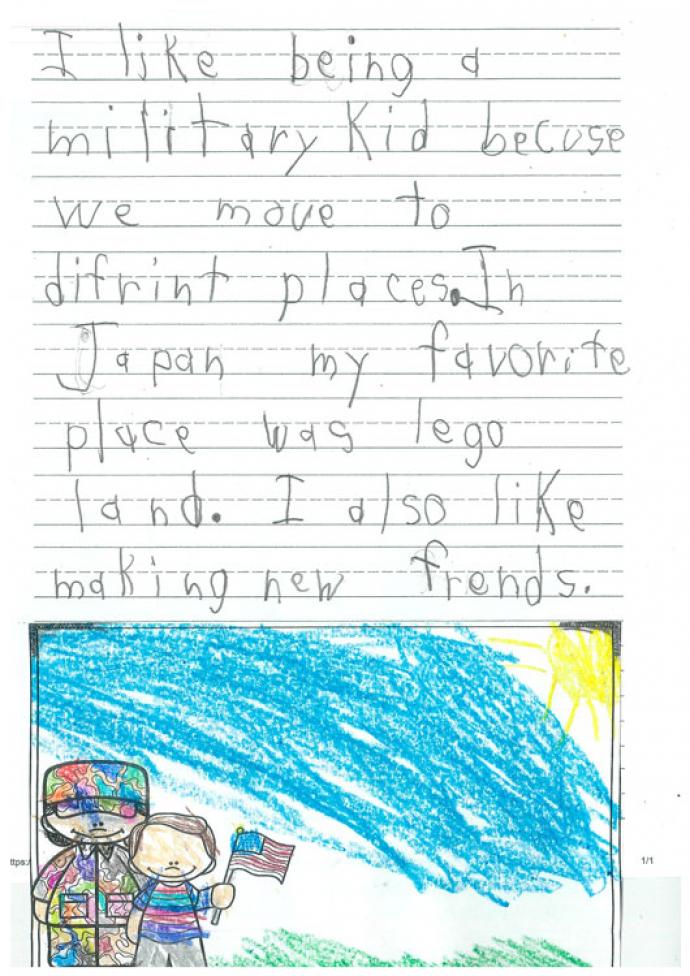 I like being a
military kid becuse
we move to
difrint places. In
Japan my favorite
place was lego
land. I also like
making new frends.
ttps:/
1/1